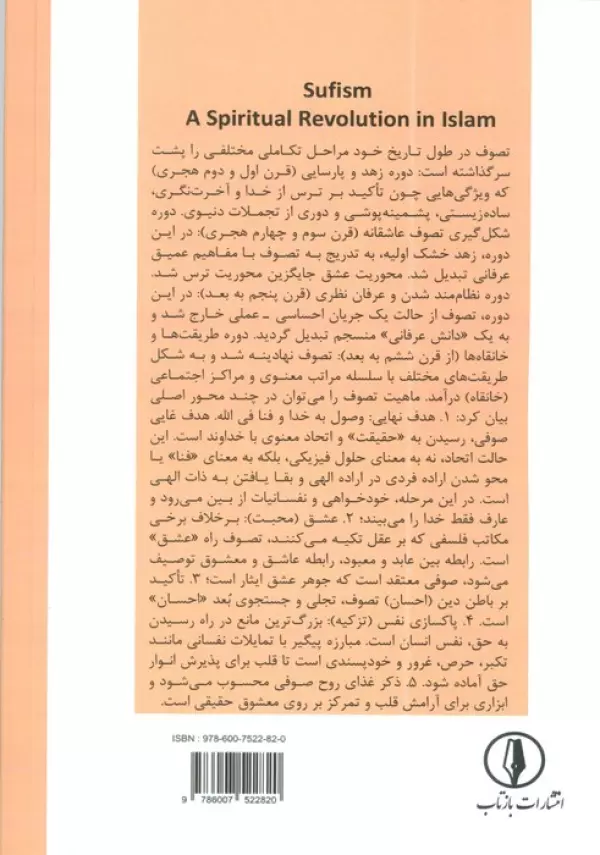 Sufism
A Spiritual Revolution in Islam
تصوف در طول تاریخ خود مراحل تکاملی مختلفی را پشت
سرگذاشته است: دوره زهد و پارسایی (قرن اول و دوم هجری)
که ویژگی‌هایی چون تأکید بر ترس از خدا و آخرت‌نگری،
ساده‌زیستی، پشمینه‌پوشی و دوری از تجملات دنیوی. دوره
شکل‌گیری تصوف عاشقانه (قرن سوم و چهارم هجری): در این
دوره، زهد خشک اولیه، به تدریج به تصوف با مفاهیم عمیق
عرفانی تبدیل شد. محوریت عشق جایگزین محوریت ترس شد.
دوره نظام‌مند شدن و عرفان نظری (قرن پنجم به بعد): در این
دوره، تصوف از حالت یک جریان احساسی ـ عملی خارج شد و
به یک «دانش عرفانی» منسجم تبدیل گردید. دوره طریقت‌ها و
خانقاه‌ها (از قرن ششم به بعد): تصوف نهادینه شد و به شکل
طریقت‌های مختلف با سلسله مراتب معنوی و مراکز اجتماعی
(خانقاه) درآمد. ماهیت تصوف را می‌توان در چند محور اصلی
بیان کرد: ۱. هدف نهایی: وصول به خدا و فنا فی الله. هدف غایی
صوفی، رسیدن به «حقیقت» و اتحاد معنوی با خداوند است. این
حالت اتحاد، نه به معنای حلول فیزیکی، بلکه به معنای «فنا» یا
محو شدن اراده فردی در اراده الهی و بقا یافتن به ذات الهی
است. در این مرحله، خودخواهی و نفسانیات از بین می‌رود و
عارف فقط خدا را می‌بیند؛ ۲. عشق (محبت): برخلاف برخی
مکاتب فلسفی که بر عقل تکیه می‌کنند، تصوف راه «عشق»
است. رابطه بین عابد و معبود، رابطه عاشق و معشوق توصیف
می‌شود، صوفی معتقد است که جوهر عشق ایثار است؛ ۳. تأکید
بر باطن دین (احسان) تصوف، تجلی و جستجوی بُعد «احسان»
است. ۴. پاکسازی نفس (تزکیه): بزرگ‌ترین مانع در راه رسیدن
به حق، نفس انسان است. مبارزه پیگیر با تمایلات نفسانی مانند
تکبر، حرص، غرور و خودپسندی است تا قلب برای پذیرش انوار
حق آماده شود. ۵. ذکر غذای روح صوفی محسوب می‌شود و
ابزاری برای آرامش قلب و تمرکز بر روی معشوق حقیقی است.
ISBN : 978-600-7522-82-0
9 786007 522820
انتشارات بازتاب